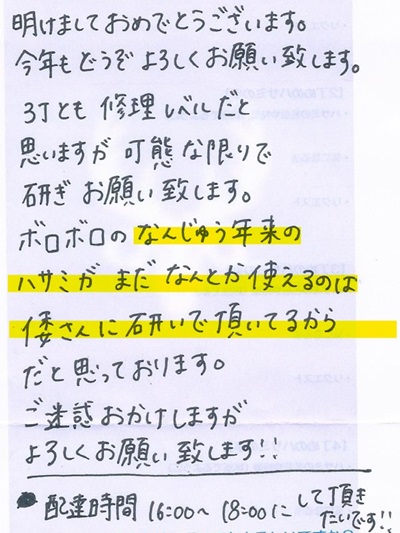 明けましておめでとうございます。
今年もどうぞよろしくお願い致します。
3丁とも 修理レベルだと
思いますが 可態な限りで
研ぎ お願い致します。
ボロボロの なんじゅう年来の
ハサミが まだ なんとか使えるのは
倭さんに研いで頂いてるから
だと思っております。
ご迷惑おかけしますが
よろしくお願い致します!!
配達時間 16:00〜18:00に して頂き
たいです!!